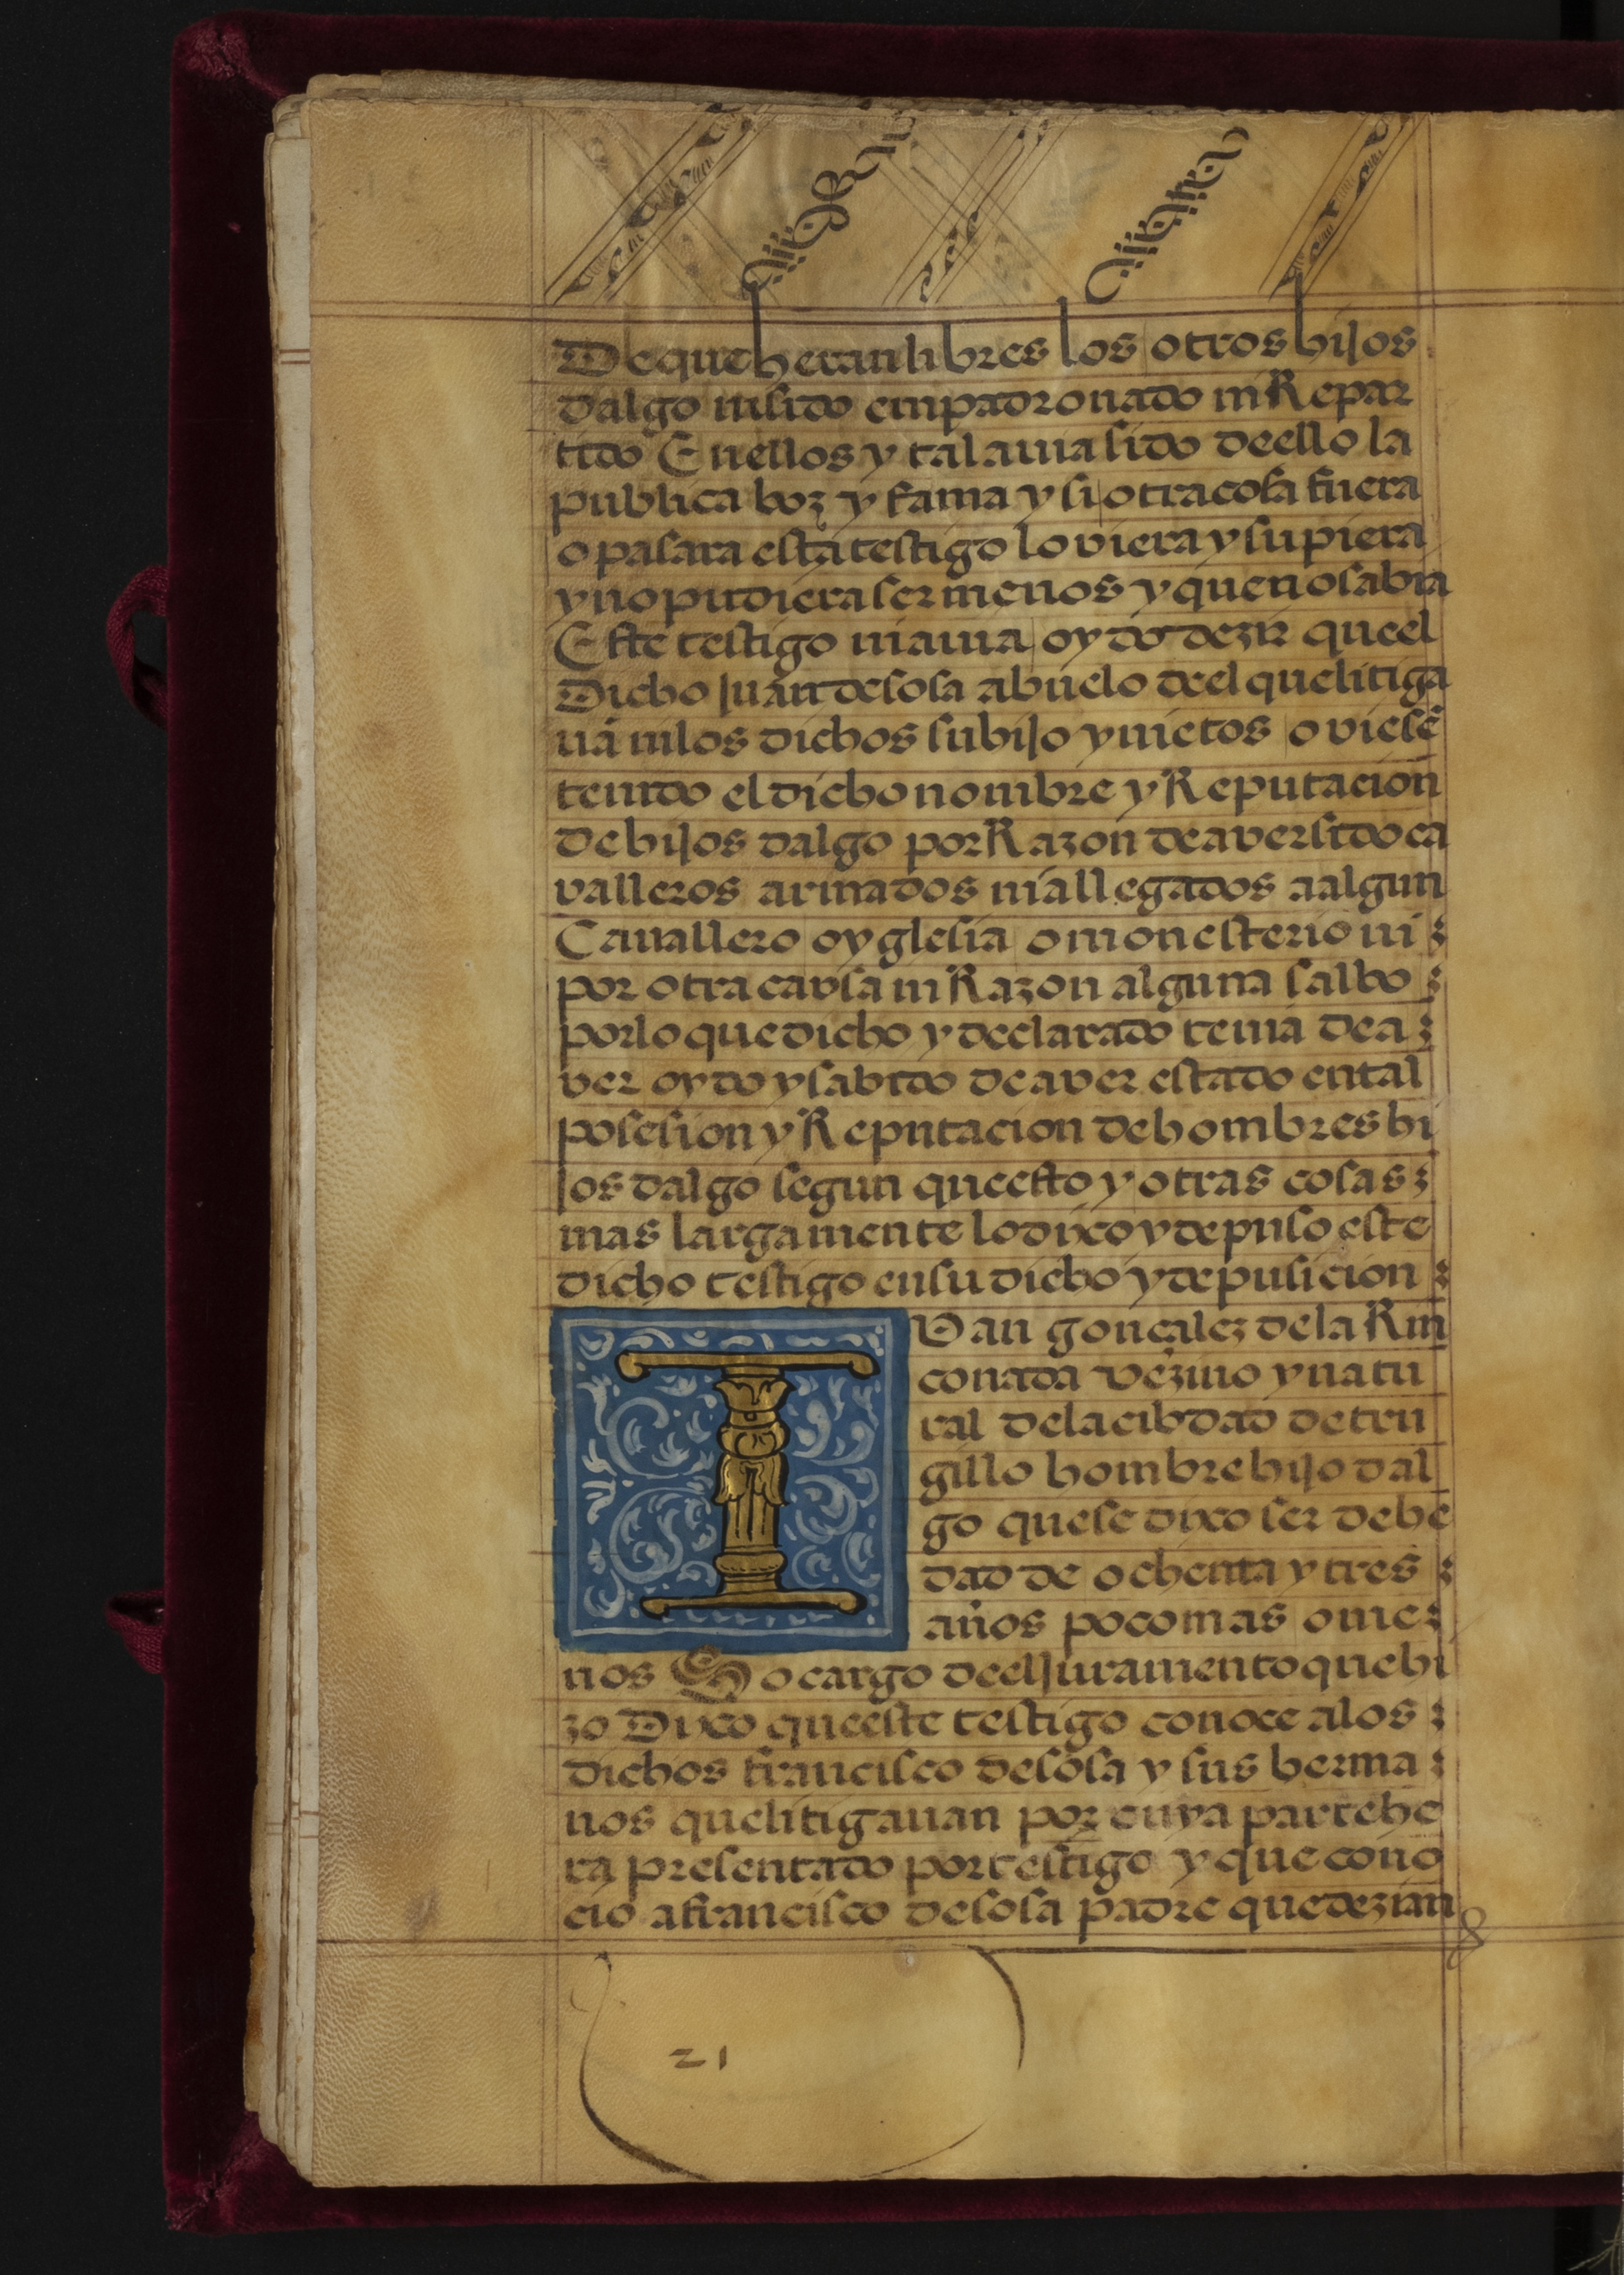 De que heran libres los otros hijos
dalgo ni sido enpadronado ni Repar
tido En ellos y tal avia sido de ello la
publica boz y fama y si otra cosa fuera
o pasara esta testigo lo viera y supiera
y no pudiera ser menos y que no sabia
Este testigo ni avia oydo dezir que el
Dicho juan de sosa abuelo de el que litiga
va ni los dichos su hijo y nietos oviesē
tenido el dicho nombre y Reputacion
de hijos dalgo por Razon de aver sido ca
valleros armados ni allegados a algun
Cavallero o yglesia o monesterio ni
por otra cavsa ni Razon alguna salbo
por lo que dicho y declarado tenia de a
ver oydo y sabido de aver estado en tal
posesion y Reputacion de hombres hi
jos dalgo segun que esto y otras cosas
mas largamente lo dixo y depuso este
dicho testigo en su dicho y depusicion
I Van gonçalez de la Rin
conada vezino y natu
ral de la cibdad de tru
gillo hombre hijo dal
go que se dixo ser de he
dad de ochenta y tres
años poco mas o me
nos So cargo de el juramento que hi
zo Dixo que este testigo conoce a los
dichos francisco de sosa y sus herma
nos que litigavan por cuya parte he
ra presentado por testigo y que cono
cio a francisco de sosa padre que dezian
21